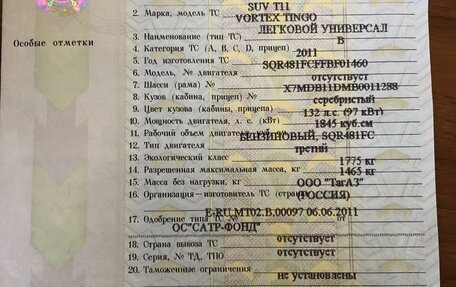 SUV T11
2. Марка, модель ТС VORTEX TINGO
3. Наименование (тип ТС) ЛЕГКОВОЙ УНИВЕРСАЛ
4. Категория ТС (A, B, C, D, прицеп) B
Особые отметки
5. Год изготовления ТС 2011
6. Модель, № двигателя SQR481FCFFBF01460
7. Шасси (рама) № отсутствует
8. Кузов (кабина, прицеп) № X7MDB11DMB0011288
9. Цвет кузова (кабины, прицепа) серебристый
10. Мощность двигателя, л. с. (кВт) 132 л.с. (97 кВт)
11. Рабочий объем двигателя, 1845 куб.см
12. Тип двигателя БЕНЗИНОВЫЙ, SQR481FC
13. Экологический класс третий
14. Разрешенная максимальная масса, кг 1775 кг
15. Масса без нагрузки, кг 1465 кг
16. Организация—изготовитель ТС (страна) ООО "ТагАЗ"
(РОССИЯ)
17. Одобрение типа ТС № E-RU.MT02.B.00097 06.06.2011
от
ОС"САТР-ФОНД"
18. Страна вывоза ТС отсутствует
19. Серия, № ТД, ТПО отсутствует
20. Таможенные ограничения не установлены